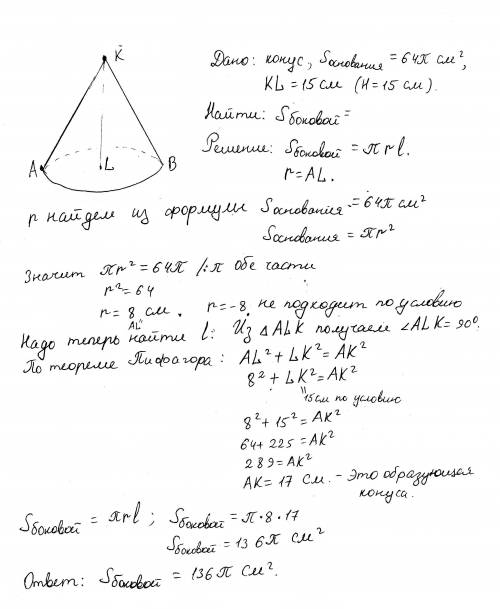 K
A
L
B
Дано: конус, Sоснования = 64π см²,
KL = 15 см (H = 15 см).
Найти: Sбоковой =
Решение: Sбоковой = πrl.
r = AL.
r найдем из формулы Sоснования = 64π см²
Sоснования = πr²
Значит πr² = 64π /:π обе части
r² = 64
r = 8 см. r = -8 не подходит по условию
AL
Надо теперь найти l: Из △ALK получаем ∠ALK = 90°.
По теореме Пифагора: AL² + LK² = AK²
8² + LK² = AK²
15 см по условию
8² + 15² = AK²
64 + 225 = AK²
289 = AK²
AK = 17 см. - Это образующая
конуса.
Sбоковой = πrl; Sбоковой = π·8·17
Sбоковой = 136π см²
Ответ: Sбоковой = 136π см².